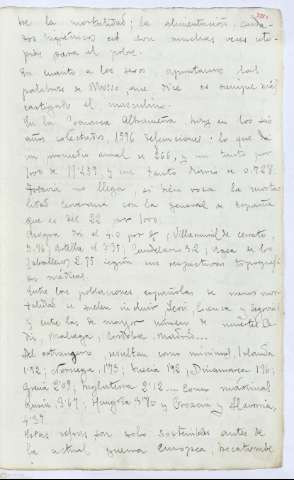 de la mortalidad; la alimentación, cuida-
dos higiénicos etc son muchas veces uto-
pias para el pobre.
En cuanto a los sexos, apuntamos las
palabras de Mosso que dice es siempre más
castigado el masculino.
En la Comarca Albaneña hay en los seis
años colectados, 1596 defunciones: lo que da
un promedio anual de 266, y un tanto por
de 17'239, y un tanto diario de 0'728.
Todavia no llega, si se roza la morta-
lidad comarcana con la general de España
que es del 22 por 100.
Aragón da el 4.0 por %; Villamuriel de Cerrato,
3.96; Botella el 3'35; Candelario 3.2; Rosa de los
Caballeros 2.75 según sus respectivas topogra-
fias médicas.
Entre las poblaciones españolas de menos mor-
talidad se suelen incluir León, Cuenca y Segovia
y entre las de mayor número de muertes Cá-
diz, Málaga, Córdoba, Madrid...
Del extrangero resultan como minimal, Islandia
1'52; Noruega 1'75; Suecia 1'92; Dinamarca 1'96;
Grecia 2'09; Inglaterra 2'12... Como máximal
Rusia 3'67; Hungria 3'70 y Croacia y Slavonia,
4'37.
Estas cifras son solo sostenibles antes de
la actual guerra Europea, hecatombe